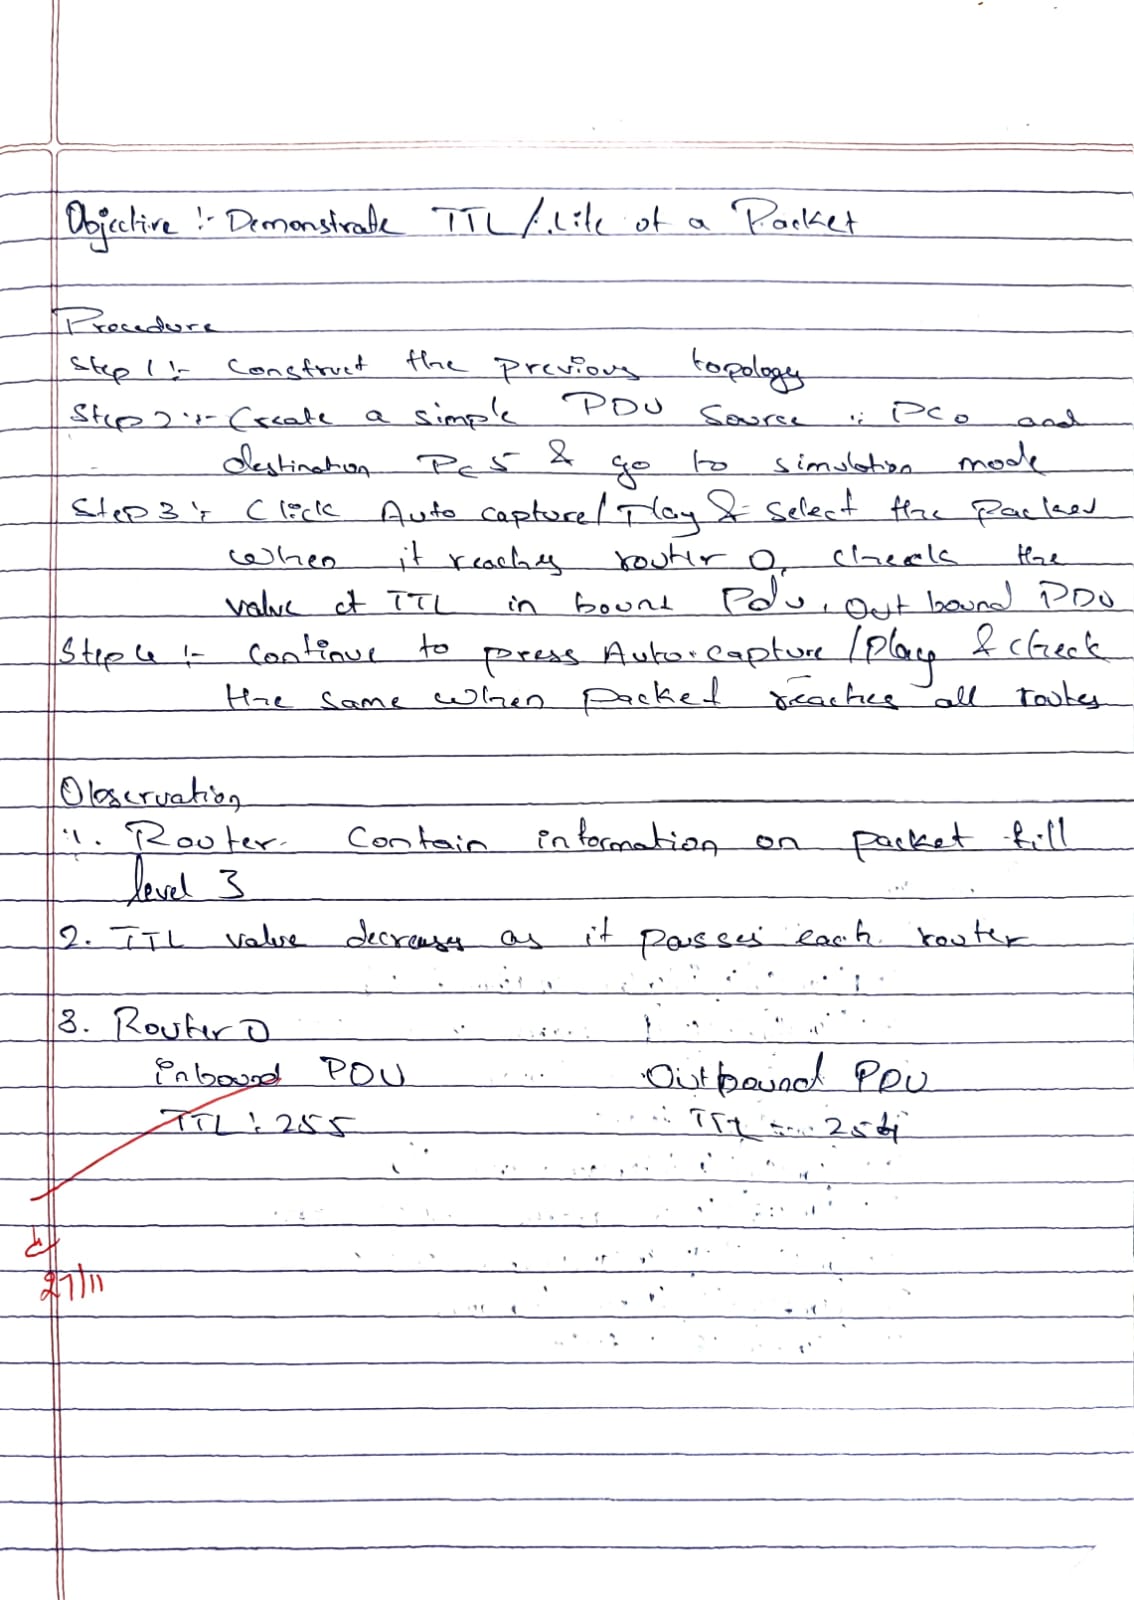 Objective :- Demonstrate TTL / Life of a Packet
Procedure
Step 1 :- Construct the previous topology
Step 2 :- Create a simple PDU Source : PC0 and
destination PC5 & go to simulation mode
Step 3 :- Click Auto capture / Play & select the Packet
When it reaches router 0, checks the
value of TTL in bound Pdu, Out bound PDU
Step 4 :- Continue to press Auto capture / Play & check
the same when packet reaches all routes
Observation
1. Router Contain information on packet till
level 3
2. TTL value decreases as it passes each router
3. Router 0
inbound PDU Outbound PDU
TTL : 255 TTL : 254
27/11